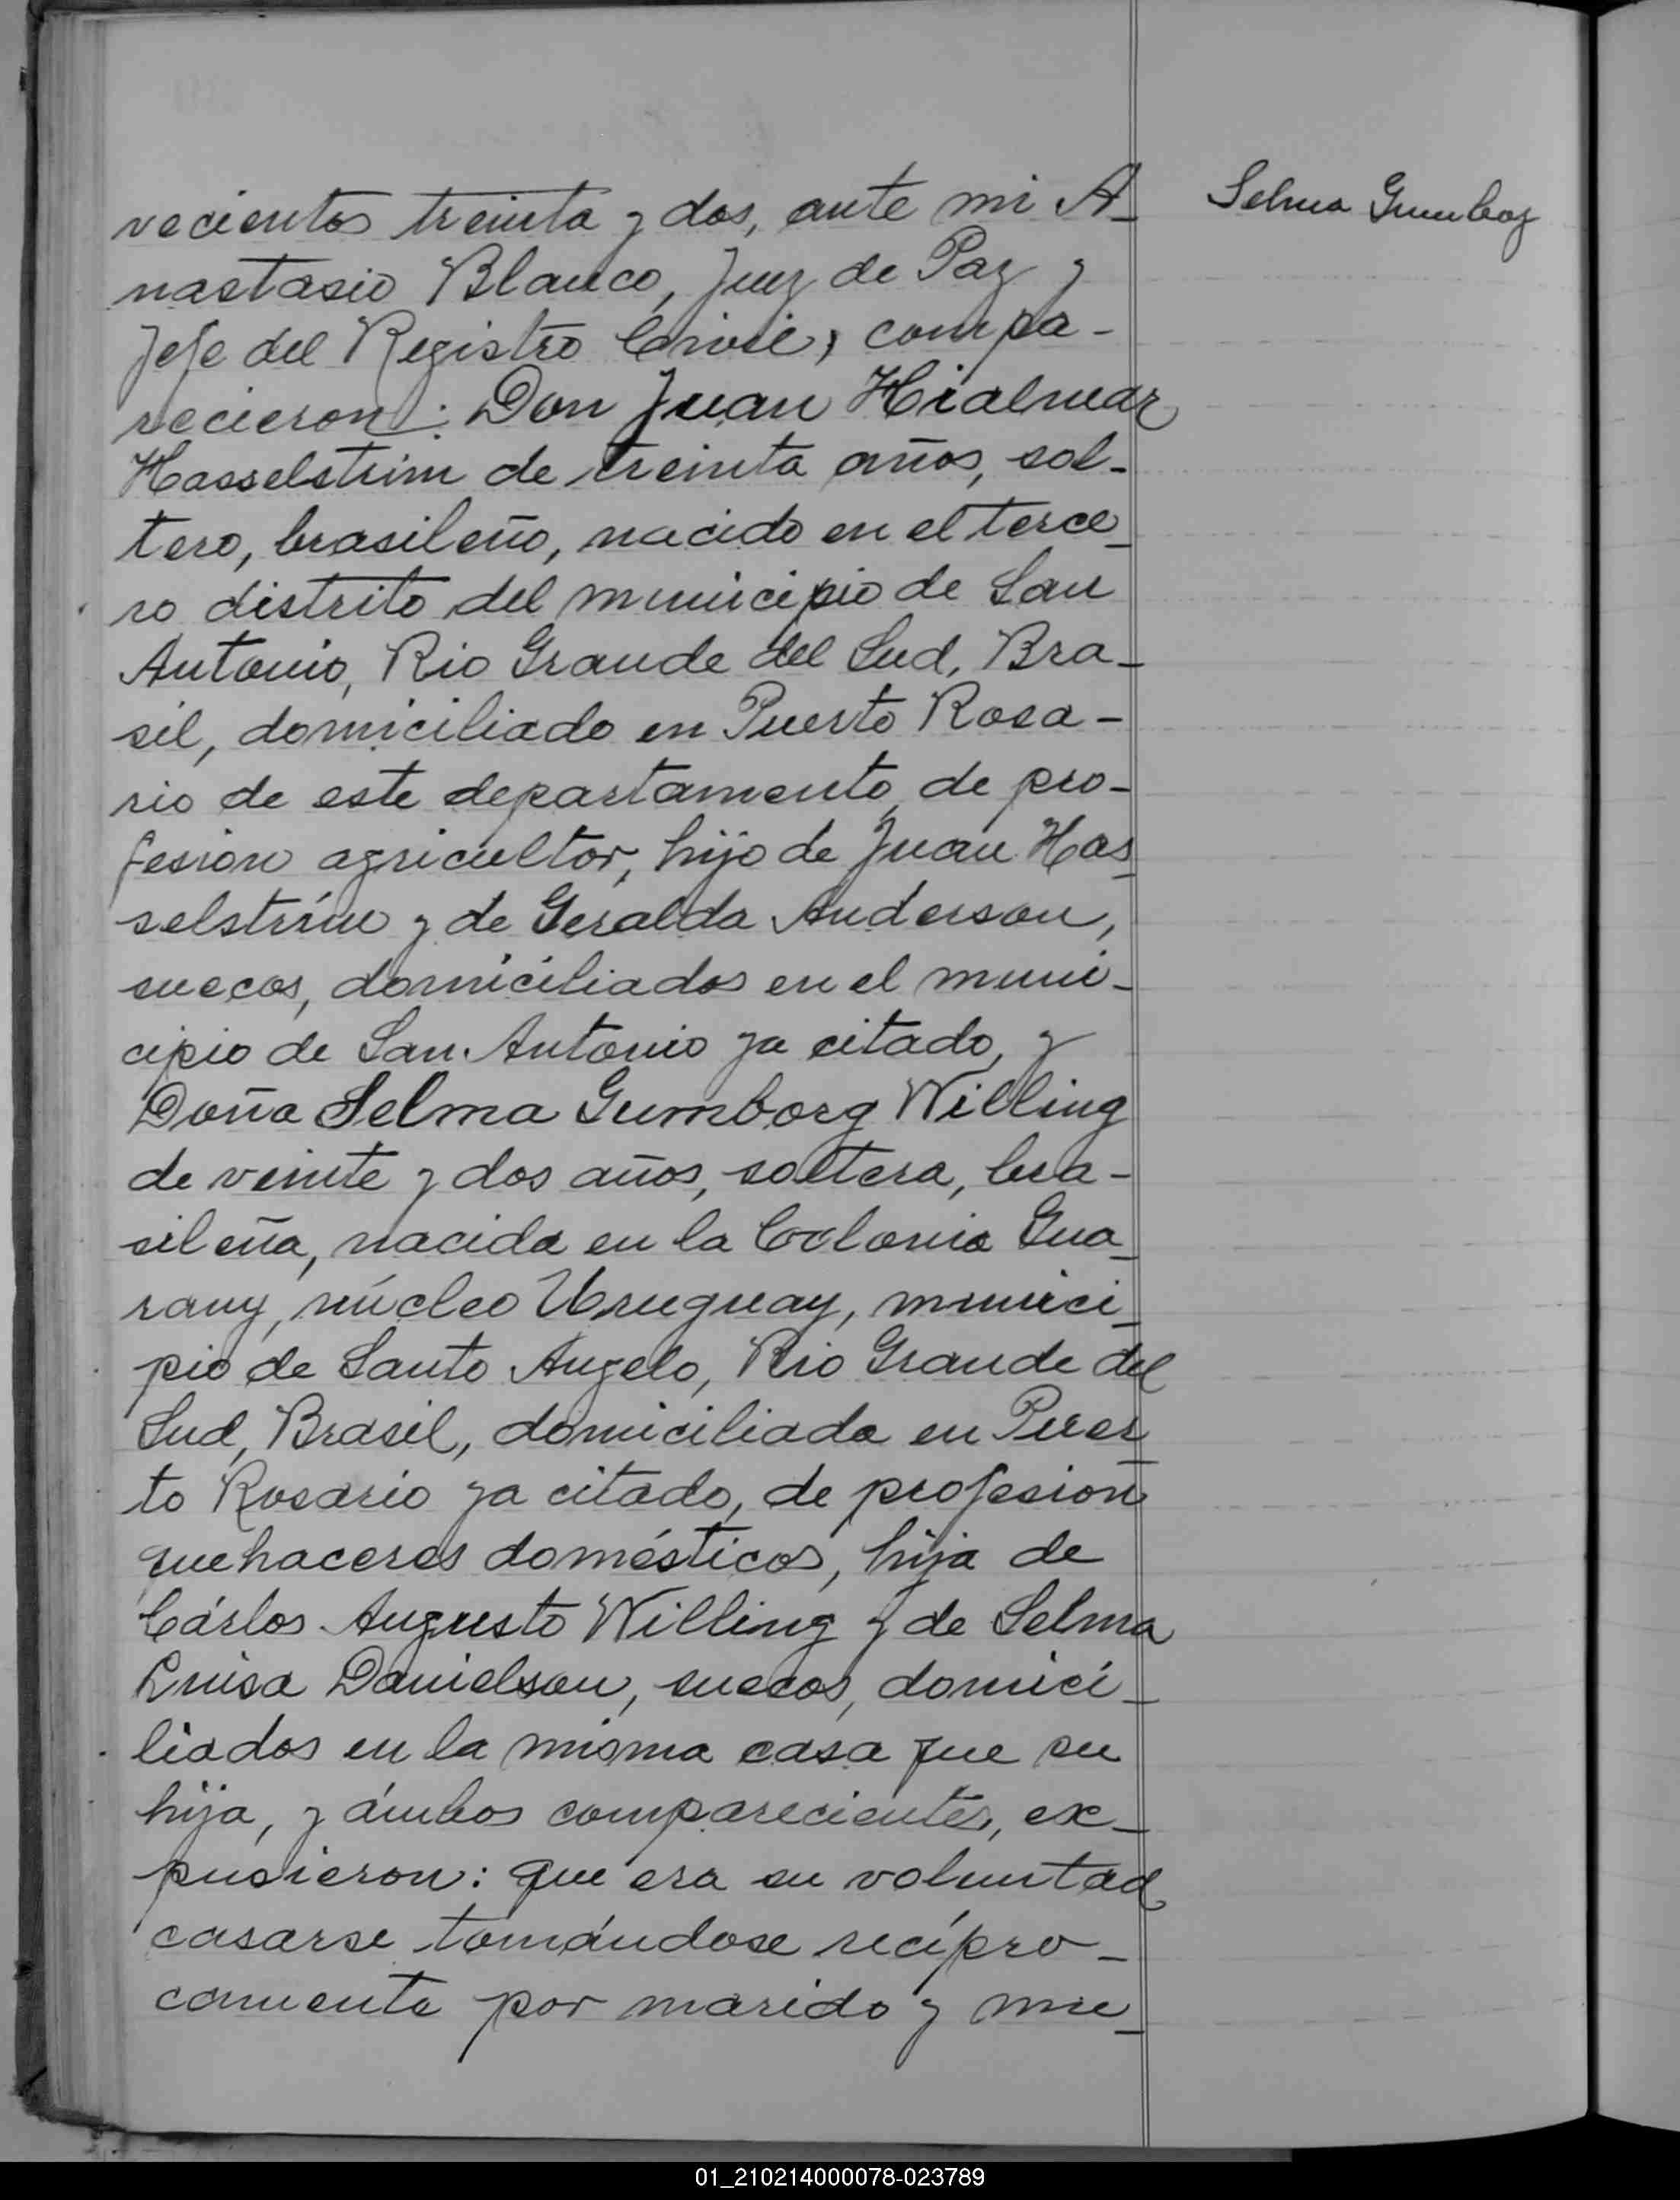 vecientos treinta y dos, ante mi A-
nastasio Blanco, Juez de Paz y
Jefe del Registro Civil, compa-
recieron: Don Juan Hialmar
Hasselstrim de treinta años, sol-
tero, brasileño, nacido en el terce-
ro distrito del municipio de San
Antonio, Rio Grande del Sud, Bra-
sil, domiciliado en Puerto Rosa-
rio de este departamento, de pro-
fesion agricultor, hijo de Juan Has-
selstrím y de Geralda Anderson,
suecos, domiciliados en el muni-
cipio de San Antonio ya citado, y
Doña Selma Gumborg Willing
de veinte y dos años, soltera, bra-
sileña, nacida en la Colonia Gua-
rany, núcleo Uruguay, munici-
pio de Santo Angelo, Rio Grande del
Sud, Brasil, domiciliada en Puer-
to Rosario ya citado, de profesion
quehaceres domésticos, hija de
Cárlos Augusto Willing y de Selma
Luisa Danielson, suecos, domici-
liados en la misma casa que su
hija, y ámbos comparecientes, ex-
pusieron: que era su voluntad
casarse tomándose recípro-
camente por marido y mu-
Selma Gumborg
01_210214000078-023789